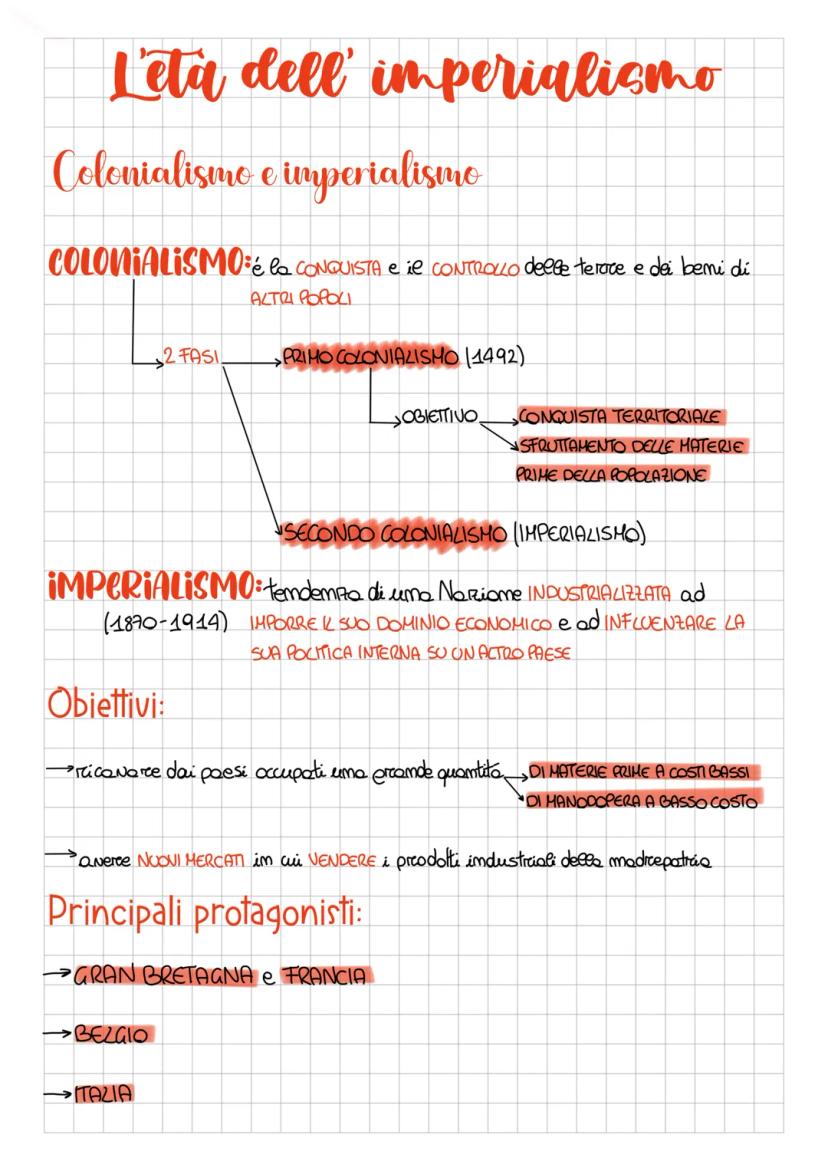 L'età dell' imperialismo
Colonialismo e imperialismo
COLONiALiSMO: é la CONQUISTA e il CONTROLLO delle terre e dei beni di
ALTRI POPOLI
2 FASI → PRIMO COLONIALISMO (1492)
→ OBIETTIVO → CONQUISTA TERRITORIALE
SFRUTTAMENTO DELLE MATERIE
PRIME DELLA POPOLAZIONE
SECONDO COLONIALISMO (IMPERIALISMO)
iMPERiALiSMO: tendenza di una Nazione INDUSTRIALIZZATA ad
(1870-1914) IMPORRE IL SUO DOMINIO ECONOMICO e ad INFLUENZARE LA
SUA POLITICA INTERNA SU UN ALTRO PAESE
Obiettivi:
→ ricavare dai paesi occupati una grande quantità → DI MATERIE PRIME A COSTI BASSI
DI MANODOPERA A BASSO COSTO
→ avere NUOVI MERCATI in cui VENDERE i prodotti industriali della madrepatria
Principali protagonisti:
→ GRAN BRETAGNA e FRANCIA
→ BELGIO
→ ITALIA